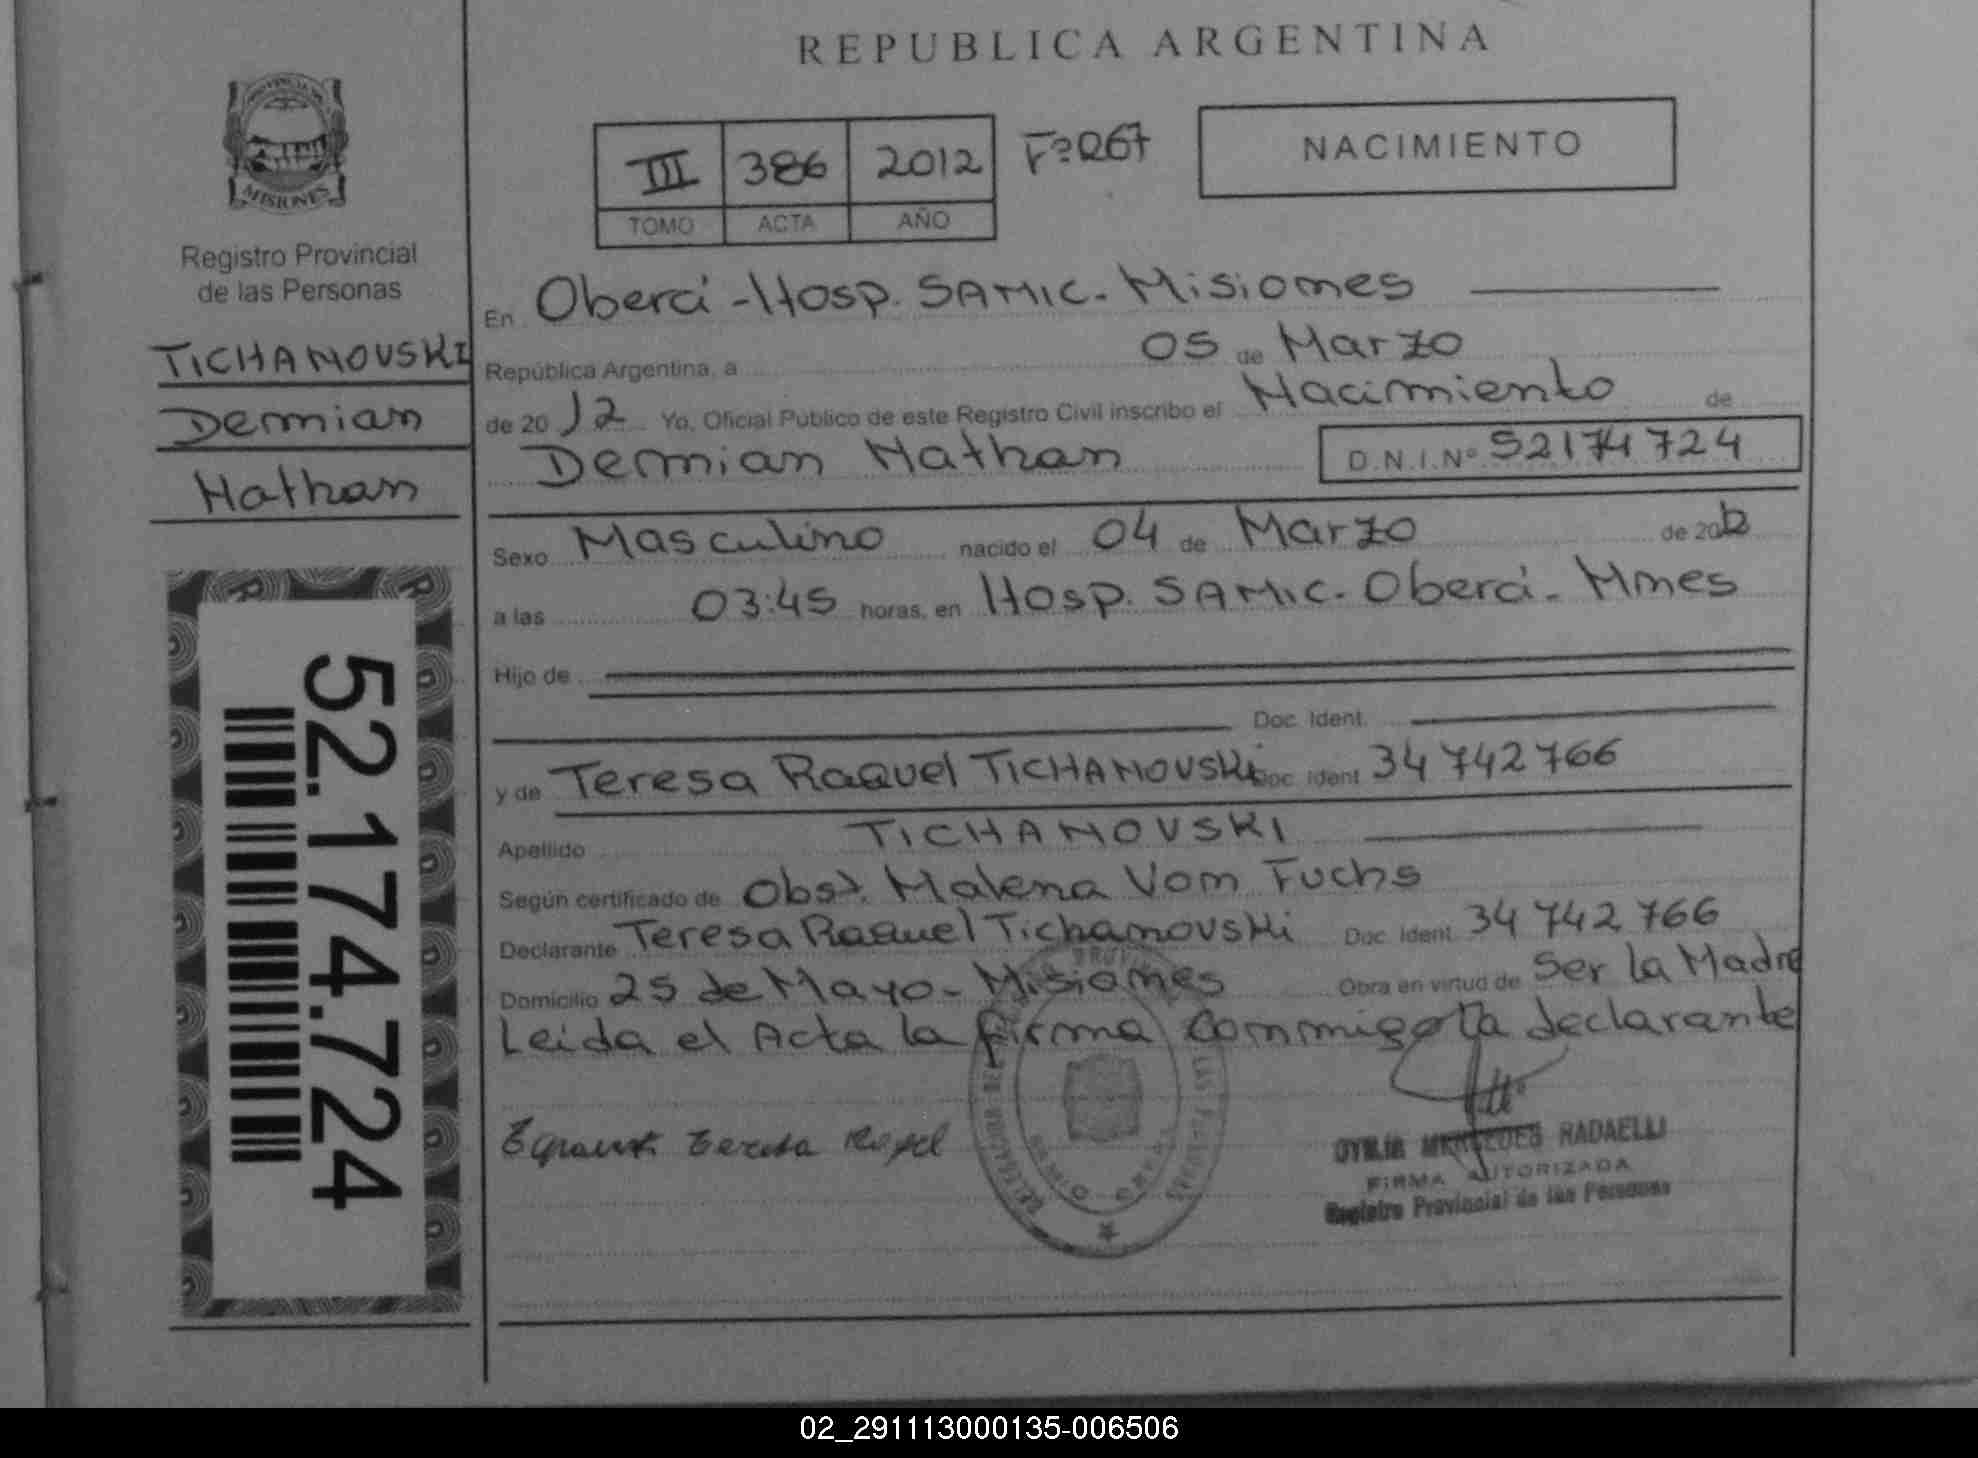 REPUBLICA ARGENTINA
PROVINCIA DE
MISIONES
Registro Provincial
de las Personas
TICHANOVSKI
Demian
Nathan
52.174.724
III 386 2012 Fº 267
TOMO ACTA AÑO
NACIMIENTO
En Oberá - Hosp. SAMIC. Misiones
República Argentina, a 05 de Marzo
de 2012 Yo, Oficial Público de este Registro Civil inscribo el Nacimiento de
Demian Nathan D.N.I.Nº 52174724
Sexo Masculino nacido el 04 de Marzo de 2012
a las 03:45 horas, en Hosp. SAMIC. Oberá - Mnes
Hijo de
Doc. Ident.
y de Teresa Raquel TICHANOVSKI Doc. Ident. 34742766
Apellido TICHANOVSKI
Según certificado de Obst. Malena Von Fuchs
Declarante Teresa Raquel Tichanovski Doc. Ident. 34742766
Domicilio 25 de Mayo - Misiones Obra en virtud de Ser la Madre
Leida el Acta la firma Conmigo la declarante
Teresa
MERCEDES RADAELLI
FIRMA AUTORIZADA
Registro Provincial de las Personas
02_291113000135-006506